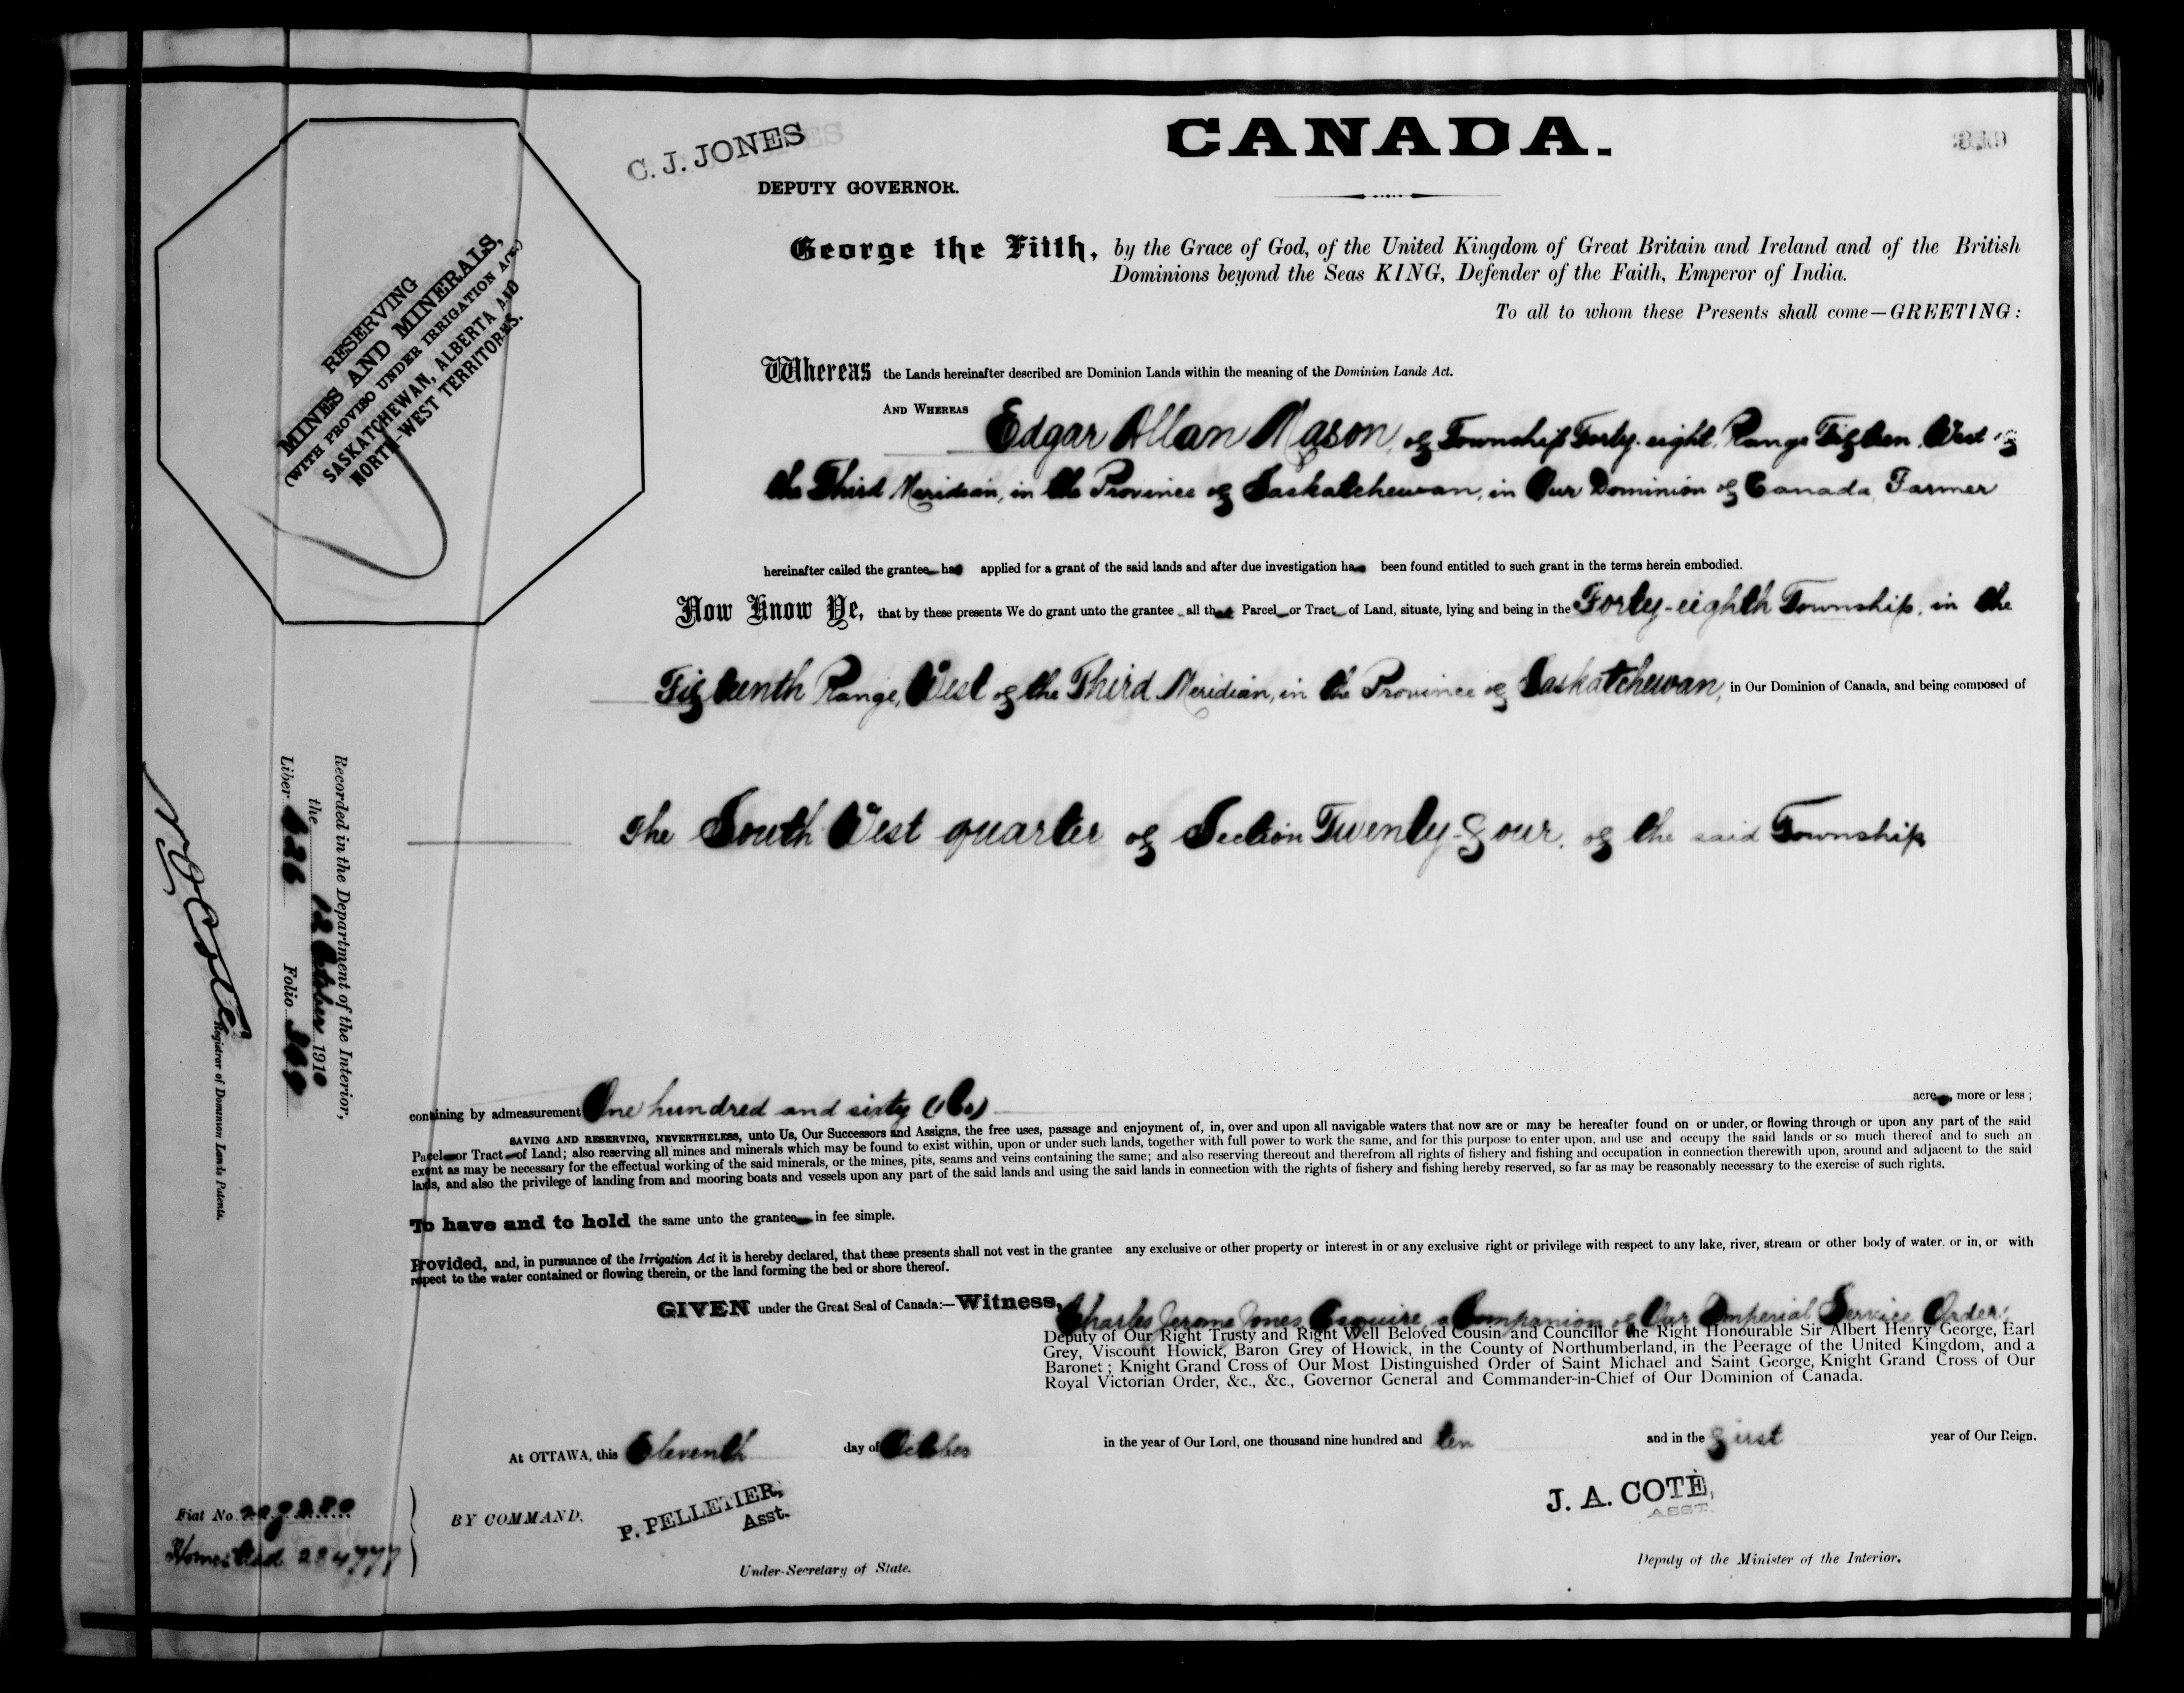 CANADA.
C. J. JONES
DEPUTY GOVERNOR.
George the Fifth, by the Grace of God, of the United Kingdom of Great Britain and Ireland and of the British
Dominions beyond the Seas KING, Defender of the Faith, Emperor of India.
To all to whom these Presents shall come—GREETING:
RESERVING
MINES AND MINERALS,
(WITH PROVISO UNDER IRRIGATION ACT)
SASKATCHEWAN, ALBERTA AND
NORTH-WEST TERRITORIES.
Whereas the Lands hereinafter described are Dominion Lands within the meaning of the Dominion Lands Act.
AND WHEREAS Edgar Allan Mason, of Township Forty-eight, Range Fifteen, West of
the Third Meridian, in the Province of Saskatchewan, in Our Dominion of Canada, Farmer
hereinafter called the grantee has applied for a grant of the said lands and after due investigation has been found entitled to such grant in the terms herein embodied.
Now Know Ye, that by these presents We do grant unto the grantee all that Parcel or Tract of Land, situate, lying and being in the Forty-eighth Township, in the
Fifteenth Range, West of the Third Meridian, in the Province of Saskatchewan, in Our Dominion of Canada, and being composed of
The South West quarter of Section Twenty-four, of the said Township
Recorded in the Department of the Interior,
the 12 October 1910
Liber 626 Folio 369
Registrar of Dominion Lands Patents.
containing by admeasurement One hundred and sixty (160) acres, more or less;
SAVING AND RESERVING, NEVERTHELESS, unto Us, Our Successors and Assigns, the free uses, passage and enjoyment of, in, over and upon all navigable waters that now are or may be hereafter found on or under, or flowing through or upon any part of the said
Parcel or Tract of Land; also reserving all mines and minerals which may be found to exist within, upon or under such lands, together with full power to work the same, and for this purpose to enter upon, and use and occupy the said lands or so much thereof and to such an
extent as may be necessary for the effectual working of the said minerals, or the mines, pits, seams and veins containing the same; and also reserving thereout and therefrom all rights of fishery and fishing and occupation in connection therewith upon, around and adjacent to the said
lands, and also the privilege of landing from and mooring boats and vessels upon any part of the said lands and using the said lands in connection with the rights of fishery and fishing hereby reserved, so far as may be reasonably necessary to the exercise of such rights.
To have and to hold the same unto the grantee in fee simple.
Provided, and, in pursuance of the Irrigation Act it is hereby declared, that these presents shall not vest in the grantee any exclusive or other property or interest in or any exclusive right or privilege with respect to any lake, river, stream or other body of water, or in, or with
respect to the water contained or flowing therein, or the land forming the bed or shore thereof.
GIVEN under the Great Seal of Canada:—Witness, Charles Jerome Jones, Esquire, a Companion of Our Imperial Service Order,
Deputy of Our Right Trusty and Right Well Beloved Cousin and Councillor the Right Honourable Sir Albert Henry George, Earl
Grey, Viscount Howick, Baron Grey of Howick, in the County of Northumberland, in the Peerage of the United Kingdom, and a
Baronet; Knight Grand Cross of Our Most Distinguished Order of Saint Michael and Saint George, Knight Grand Cross of Our
Royal Victorian Order, &c., &c., Governor General and Commander-in-Chief of Our Dominion of Canada.
At OTTAWA, this Eleventh day of October in the year of Our Lord, one thousand nine hundred and ten and in the first year of Our Reign.
BY COMMAND.
P. PELLETIER,
Asst.
Under-Secretary of State.
J. A. COTE,
ASST.
Deputy of the Minister of the Interior.
Fiat No.
Homestead 284777